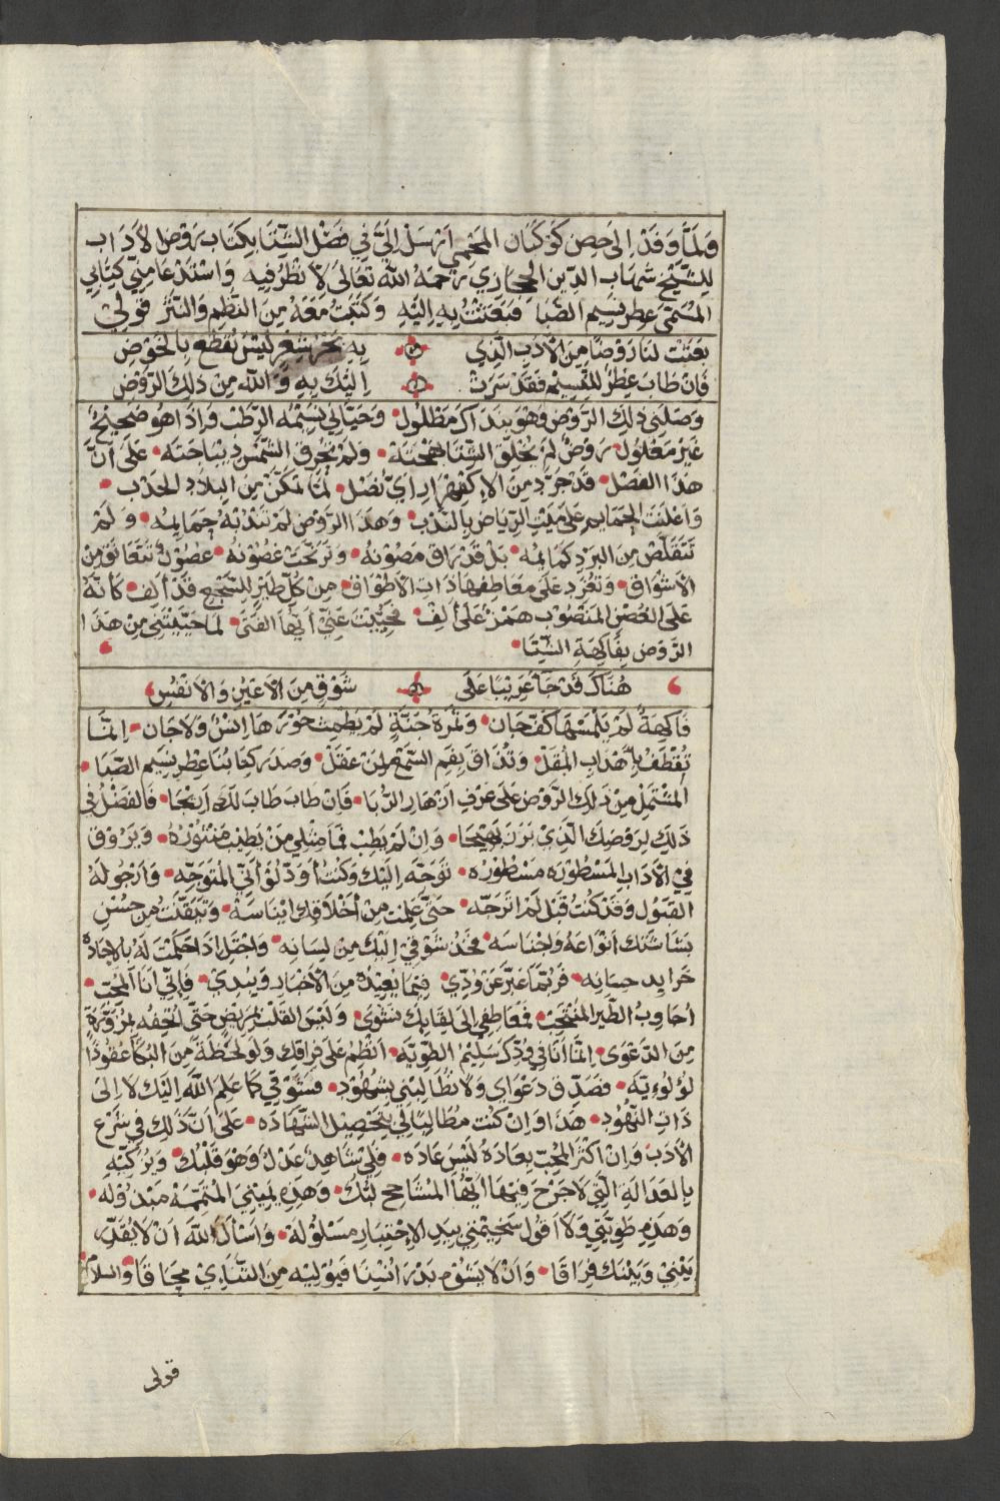 وَلَمَّا وَفَدَ إِلَى حِصْنِ كَوْكَبَان المَحْمِي أَرْسَلَ إِلَيَّ فِي فَصْلِ الشِّتَا بِكِتَاب رَوْضِ الْآدَاب
لِلشَّيْخِ شَهَاب الدِّين الحِجَازِي رَحِمَهُ اللَّه تَعَالَى لِأَنْظُرَ فِيهِ وَاسْتَدْعَا مِنِّي كِتَابِي
المُسَمَّى عِطْر نَسِيم الصَّبَا فَبَعَثْتُ بِهِ إِلَيْهِ وَكَتَبْتُ مَعَهُ مِنَ النَّظْمِ وَالنَّثْرِ قَوْلِي
بَعَثْتَ لَنَا رَوْضًا مِنَ الْأَدَبِ الَّذِي بِهِ بَحْرُ شِعْرٍ لَيْسَ يُقْطَعُ بِالْخَوْضِ
فَإِنْ طَابَ عِطْرٌ لِلنَّسِيمِ فَقَدْ سَرَتْ إِلَيْكَ بِهِ وَاللَّه مِنْ ذَلِكَ الرَّوْضِ
وَصَلَنِي ذَلِكَ الرَّوْضُ وَهُوَ بِنَدَاكَ مَطْلُول وَحَيَّانِي نَسِيْمُهُ الرَّطْب وَإِذَا هُوَ صَحِيحٌ
غَيْرُ مَعْلُول رَوْضٌ لَمْ يُخْلِقِ الشِّتَا بَهْجَتَهُ وَلَمْ تُحْرِقِ الشَّمْسُ دِيْبَاجَتَهُ عَلَى أَنَّ
هَذَا الفَصْلَ قَدْ جَرَّدَ مِنَ الِاكْفِهْرَارِ أَيَّ نَصْل لَمَّا تَمَكَّنَ مِنَ البِلَادِ الجَدْب
وَأَعْلَنَتِ الْحَمَايِمُ عَلَى مَيِّتِ الرِّيَاضِ بِالنَّدْب وَهَذَا الرَّوْضُ لَمْ تَنْدُبْهُ حَمَايِمُه وَلَمْ
تَتَقَلَّصْ مِنَ البَرْدِ كَمَايِمُه بَلْ قَدْ رَاقَ مَصُوْنُهُ وَتَرَنَّحَتْ غُصُوْنُهُ غُصُوْنٌ تَتَعَانَقُ مِنَ
الْأَشْوَاقِ وَتُغَرِّدُ عَلَى مَعَاطِفِهَا ذَاتُ الْأَطْوَاقِ مِنْ كُلِّ طَيْرٍ لِلسَّجْعِ قَدْ أَلِف كَأَنَّهُ
عَلَى الغُصْنِ المَنْصُوْبِ هَمْزٌ عَلَى أَلِف فَحُيِّيْتَ عَنِّي أَيُّهَا الفَتَى لِمَا حَيَّيْتَنِي مِنْ هَذَا
الرَّوْضِ بِفَاكِهَةِ الشِّتَا
هُنَاكَ قَدْ جَاءَ غَرِيْبًا عَلَى شَوْقٍ مِنَ الْأَعْيُنِ وَالْأَنْفُسِ
فَاكِهَةٌ لَمْ يَلْمَسْهَا كَفُّ جَان وَثَمَرَةُ جَنَّةٍ لَمْ يَطْمِثْ حُوْرَهَا إِنْسٌ وَلَا جَان إِنَّمَا
تُقْطَفُ بِأَهْدَابِ الْمُقَل وَتُذَاقُ بِفَمِ السَّمْعِ لِمَنْ عَقَل وَصَدَرَ كِتَابُنَا عِطْرُ نَسِيمِ الصَّبَا
المُشْتَمِلُ مِنْ ذَلِكَ الرَّوْضِ عَلَى عَرْفِ أَزْهَارِ الرُّبَا فَإِنْ طَابَ طَابَ لَكَ أَرِيْجًا فَالفَضْلُ فِي
ذَلِكَ لِرَوْضِكَ الَّذِي بَرَزَ بَهِيْجًا وَإِنْ لَمْ يَطِبْ فَمَا مِثْلِي مَنْ يَطِيْبُ مَنْثُوْرُهُ وَيَرُوْقُ
فِي الْآدَابِ المَسْطُوْرَةِ مَسْطُوْرُهُ تَوَجَّهَ إِلَيْكَ وَكُنْتُ أَوَدُّ لَوْ أَنِّي الْمُتَوَجِّه وَأَرْجُوْ لَهُ
القَبُوْلَ وَقَدْ كُنْتُ قَبْلُ لَمْ أَتَرَجَّه حَتَّى عَلِمْتُ مِنْ أَخْلَاقِكَ إِيْنَاسَه وَتَيَقَّنْتُ مِنْ حُسْنِ
بَشَاشَتِكَ أَنْوَاعَهُ وَأَجْنَاسَه فَخُذْ شَوْقِي إِلَيْكَ مِنْ لِسَانِه وَاحْتَمِلْ إِذَا حَكَمْتَ لَهُ بِالْإِجَادَةِ
خَرَايِدَ حِسَانِه فَرُبَّمَا عَبَّرَ عَنْ وُدِّي فِيْمَا يُعِيْدُهُ مِنَ الْأَخْبَارِ وَيُبْدِي فَإِنِّي أَنَا الْمُحِبّ
أُجَاوِبُ الطَّيْرَ المُنْتَحِب فَعَاطِفِي إِلَى لِقَايِكَ نَشْوَى وَلَيْسَ القَلْبُ بِمَرِيْضٍ حَتَّى أُتْحِفَهُ بِمُزَوَّرَةٍ
مِنَ الدَّعْوَى إِنَّمَا أَنَا فِي وُدِّكَ سَلِيْمُ الطَّوِيَّه أَنْظِمُ عَلَى فِرَاقِكَ وَلَوْ لَحْظَةً مِنَ البُكَاءِ عُقُوْدًا
لُؤْلُوئِيَّه فَصَدِّقْ دَعْوَايَ وَلَا تُطَالِبْنِي بِشُهُوْد فَشَوْقِي كَمَا عَلِمَ اللَّهُ إِلَيْكَ لَا إِلَى
ذَاتِ النُّهُوْد هَذَا وَإِنْ كُنْتَ مُطَالِبًا لِي بِتَحْصِيْلِ الشَّهَادَه عَلَى أَنَّ ذَلِكَ فِي شَرْعِ
الْأَدَبِ وَإِنْ أَكْثَرَ الْمُحِبُّ بِعَادَهُ لَيْسَ عَادَه فَلِي شَاهِدٌ عَدْلٌ وَهُوَ قَلْبُك وَيُزَكِّيْهِ
بِالعَدَالَةِ الَّتِي لَا جَرْحَ فِيْهَا أَيُّهَا المُشَاجِحُ لُبُّك وَهَذِهِ يَمِيْنِي الْمُتَمَّمَةُ مَبْذُوْلَه
وَهَذِهِ طَوِيَّتِي وَلَا أَقُولُ سَخِيْمَتِي بِيَدِ الِاخْتِبَارِ مَسْلُوْلَة وَأَسْأَلُ اللَّهَ أَنْ لَا يُقَدِّرَ
بَيْنِي وَبَيْنَكَ فِرَاقًا وَأَنْ لَا يَسُوْمَ بَدْرَ أُنْسِنَا فَيُوْلِيْهِ مِنَ التَّنَائِي مِحَاقًا وَالسلام
قولى